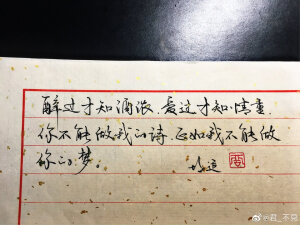 醉过才知酒浓.爱过才知情重.
你不能做我的诗.正如我不能做
你的梦.
@君_不完